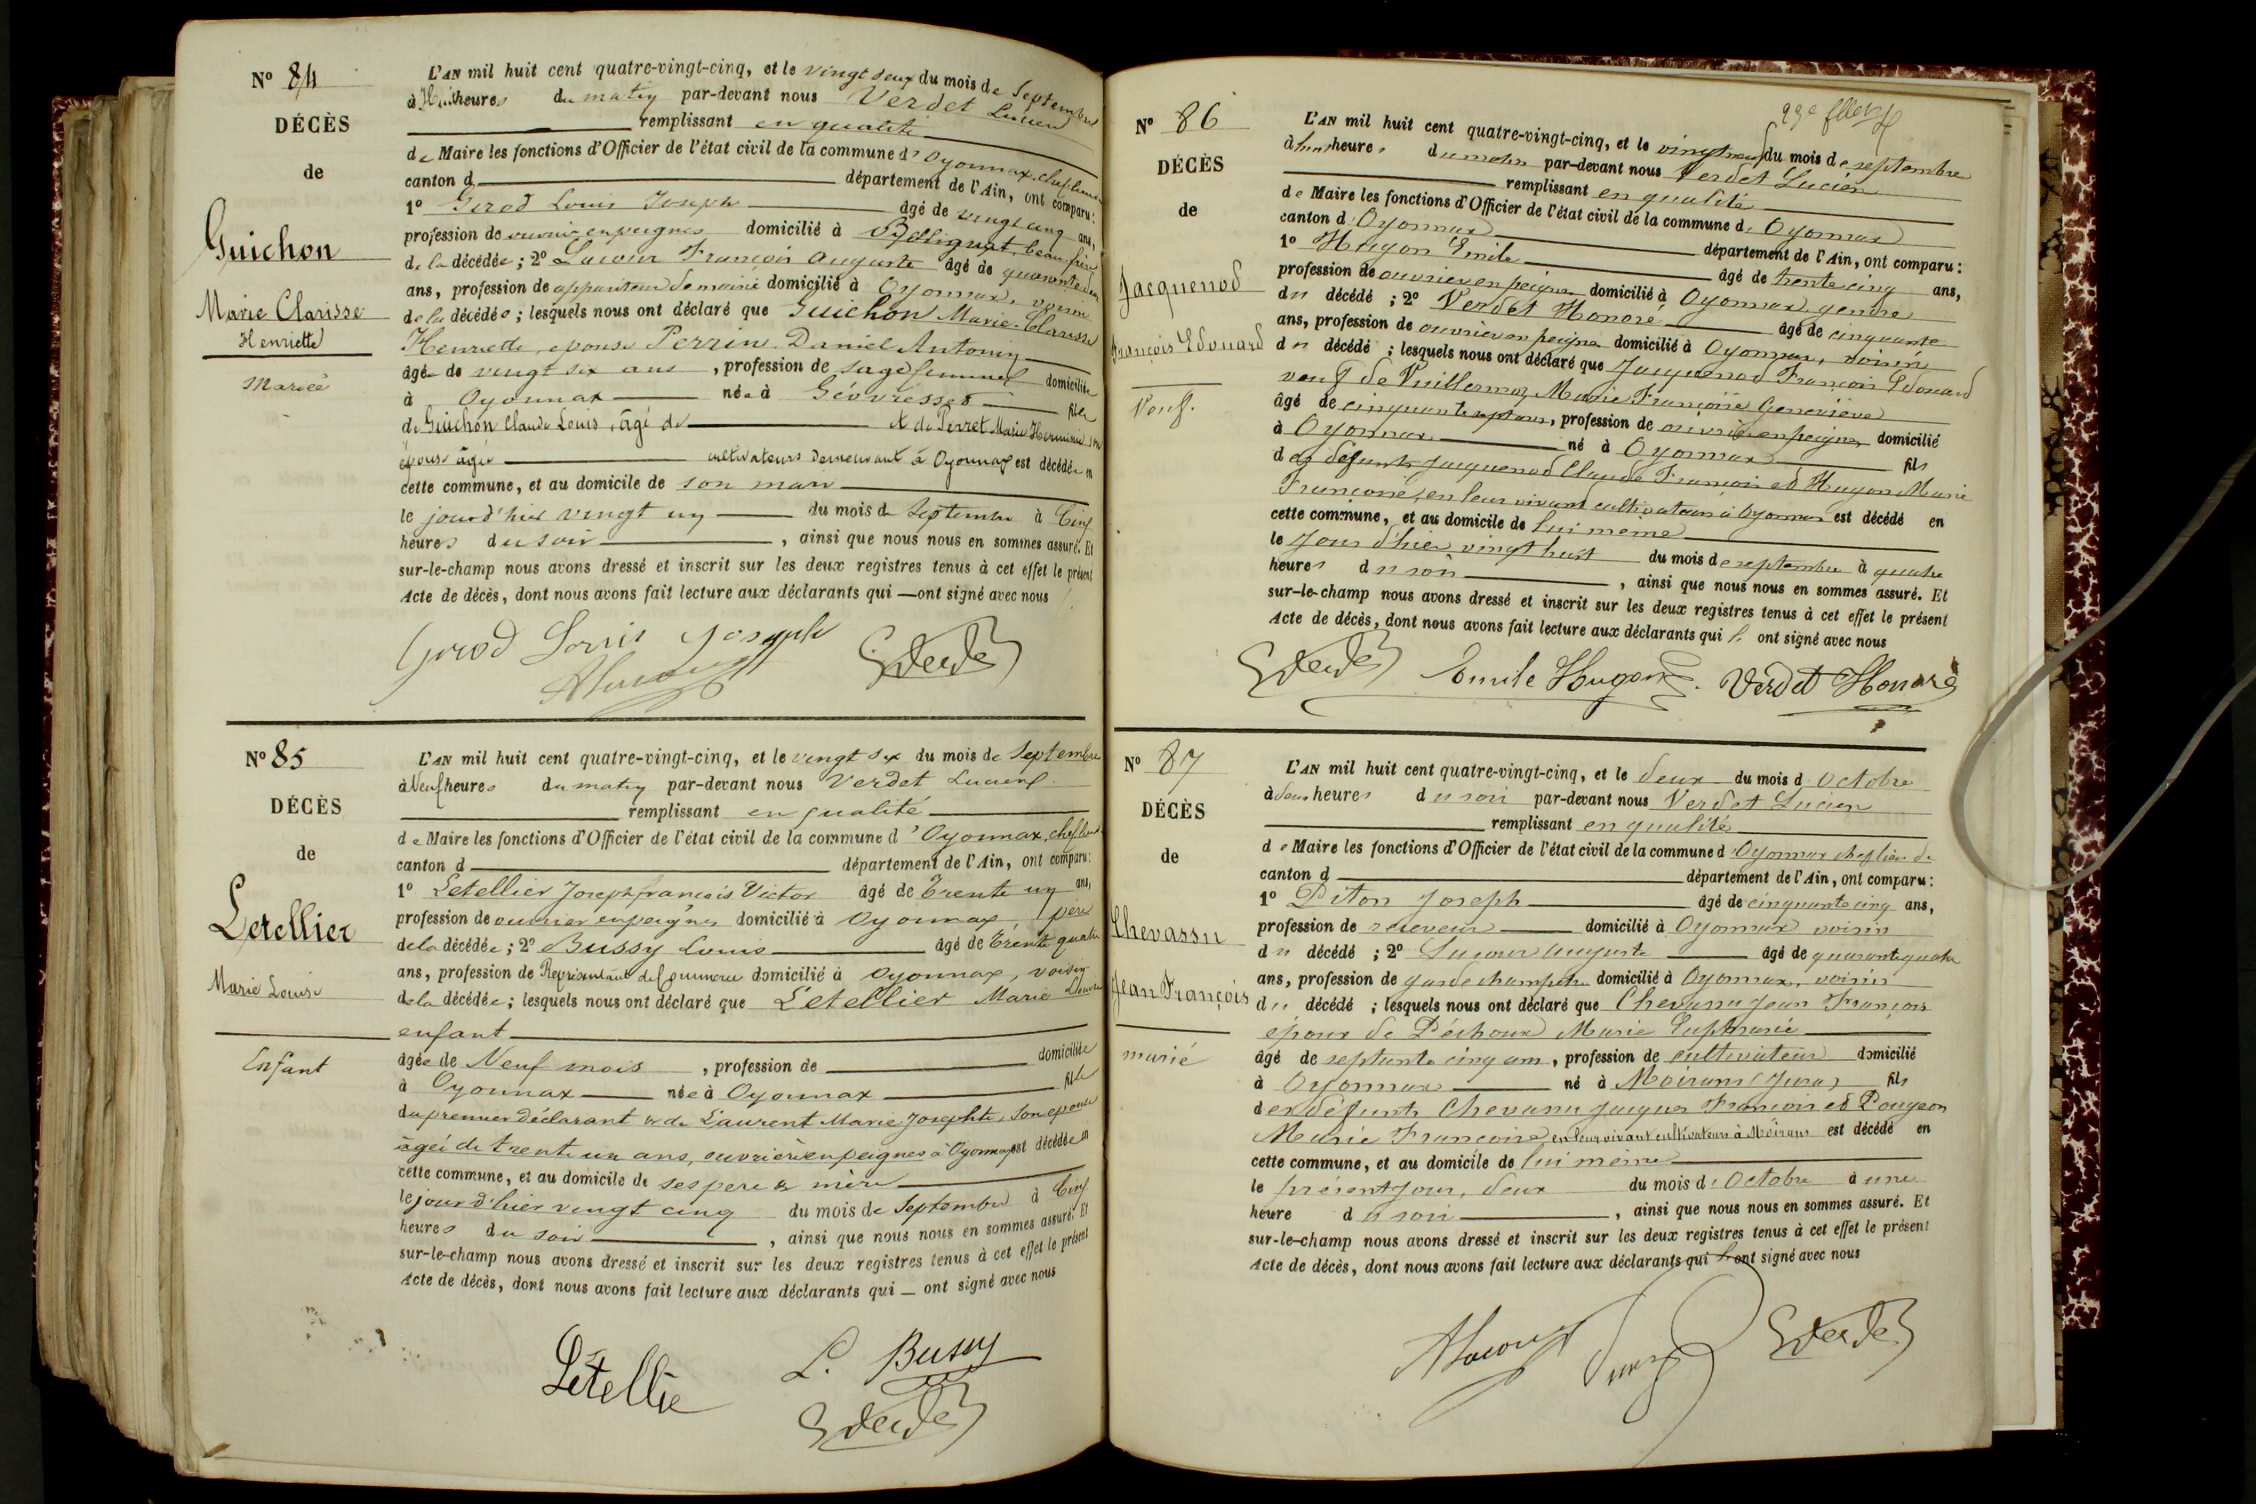 Nº 84
DÉCÈS
de
Guichon
Marie Clarisse
Henriette
Mariée
L'AN mil huit cent quatre-vingt-cinq, et le vingt deux du mois de Septembre
à Huit heures du matin par-devant nous Verdet Lucien
remplissant en qualité
de Maire les fonctions d'Officier de l'état civil de la commune d'Oyonnax, chef lieu de
canton d département de l'Ain, ont comparu:
1º Girod Louis Joseph âgé de vingt cinq ans,
profession de ouvrier en peignes domicilié à Veyziat, beau frère
de la décédée; 2º Lacour François Auguste âgé de quarante deux
ans, profession de appariteur de mairie domicilié à Oyonnax, voisin
de la décédée; lesquels nous ont déclaré que Guichon Marie-Clarisse
Henriette, épouse Perrin Daniel Antonin
âgée de vingt six ans, profession de sage femme domiciliée
à Oyonnax née à Géovresset fille
de Guichon Claude Louis, âgé de & de Perret Marie Herminie son
épouse âgée cultivateurs demeurant à Oyonnax est décédée en
cette commune, et au domicile de son mari
le jour d'hier vingt un du mois de Septembre à Cinq
heures du soir, ainsi que nous nous en sommes assuré. Et
sur-le-champ nous avons dressé et inscrit sur les deux registres tenus à cet effet le présent
Acte de décès, dont nous avons fait lecture aux déclarants qui — ont signé avec nous
Girod Louis Joseph
ALacour
LVerdet
Nº 85
DÉCÈS
de
Letellier
Marie Louise
Enfant
L'AN mil huit cent quatre-vingt-cinq, et le vingt six du mois de Septembre
à Neuf heures du matin par-devant nous Verdet Lucien
remplissant en qualité
de Maire les fonctions d'Officier de l'état civil de la commune d'Oyonnax, chef lieu de
canton d département de l'Ain, ont comparu:
1º Letellier Joseph françois Victor âgé de Trente un ans,
profession de ouvrier en peignes domicilié à Oyonnax, père
de la décédée; 2º Bussy Louis âgé de Trente quatre
ans, profession de Représentant de Commerce domicilié à Oyonnax, voisin
de la décédée; lesquels nous ont déclaré que Letellier Marie Louise
enfant
âgée de Neuf mois, profession de domiciliée
à Oyonnax née à Oyonnax fille
du premier déclarant & de Laurent Marie Josephte, son épouse
âgée de trente un ans, ouvrière en peignes à Oyonnax est décédée en
cette commune, et au domicile de ses père & mère
le jour d'hier vingt cinq du mois de Septembre à Cinq
heures du soir, ainsi que nous nous en sommes assuré. Et
sur-le-champ nous avons dressé et inscrit sur les deux registres tenus à cet effet le présent
Acte de décès, dont nous avons fait lecture aux déclarants qui — ont signé avec nous
Létellie
L. Bussy
LVerdet
Nº 86
DÉCÈS
de
Jacquenod
François Edouard
Veuf.
L'AN mil huit cent quatre-vingt-cinq, et le vingt neuf du mois de septembre
à heures du matin par-devant nous Verdet Lucien
remplissant en qualité
de Maire les fonctions d'Officier de l'état civil de la commune d'Oyonnax
canton d'Oyonnax département de l'Ain, ont comparu:
1º Hugon Emile âgé de trente cinq ans,
profession de ouvrier en peignes domicilié à Oyonnax, gendre
du décédé; 2º Verdet Honoré âgé de cinquante
ans, profession de ouvrier en peignes domicilié à Oyonnax, voisin
du décédé; lesquels nous ont déclaré que Jacquenod François Edouard
veuf de Vuillermoz Marie Françoise Geneviève
âgé de cinquante sept ans, profession de ouvrier en peignes domicilié
à Oyonnax né à Oyonnax fils
des défunts Jacquenod Claude François et Hugon Marie
Françoise, en leur vivant cultivateurs à Oyonnax est décédé en
cette commune, et au domicile de lui même
le jour d'hier vingt huit du mois de septembre à quatre
heures du soir, ainsi que nous nous en sommes assuré. Et
sur-le-champ nous avons dressé et inscrit sur les deux registres tenus à cet effet le présent
Acte de décès, dont nous avons fait lecture aux déclarants qui ont signé avec nous
LVerdet
Emile Hugon
Verdet Honoré
Nº 87
DÉCÈS
de
Chevassu
Jean François
marié
L'AN mil huit cent quatre-vingt-cinq, et le deux du mois d'Octobre
à deux heures du soir par-devant nous Verdet Lucien
remplissant en qualité
de Maire les fonctions d'Officier de l'état civil de la commune d'Oyonnax chef lieu de
canton d département de l'Ain, ont comparu:
1º Piton Joseph âgé de cinquante cinq ans,
profession de receveur domicilié à Oyonnax voisin
du décédé; 2º Lacour Auguste âgé de quarante quatre
ans, profession de garde champêtre domicilié à Oyonnax, voisin
du décédé; lesquels nous ont déclaré que Chevassu Jean François
époux de Péchoux Marie Euphrasie
âgé de septante cinq ans, profession de cultivateur domicilié
à Oyonnax né à Moirans (Jura) fils
des défunts Chevassu Jacques François et Pougeon
Marie Françoise, en leur vivant cultivateurs à Moirans est décédé en
cette commune, et au domicile de lui même
le présent jour, deux du mois d'Octobre à une
heure du soir, ainsi que nous nous en sommes assuré. Et
sur-le-champ nous avons dressé et inscrit sur les deux registres tenus à cet effet le présent
Acte de décès, dont nous avons fait lecture aux déclarants qui ont signé avec nous
ALacour
LVerdet